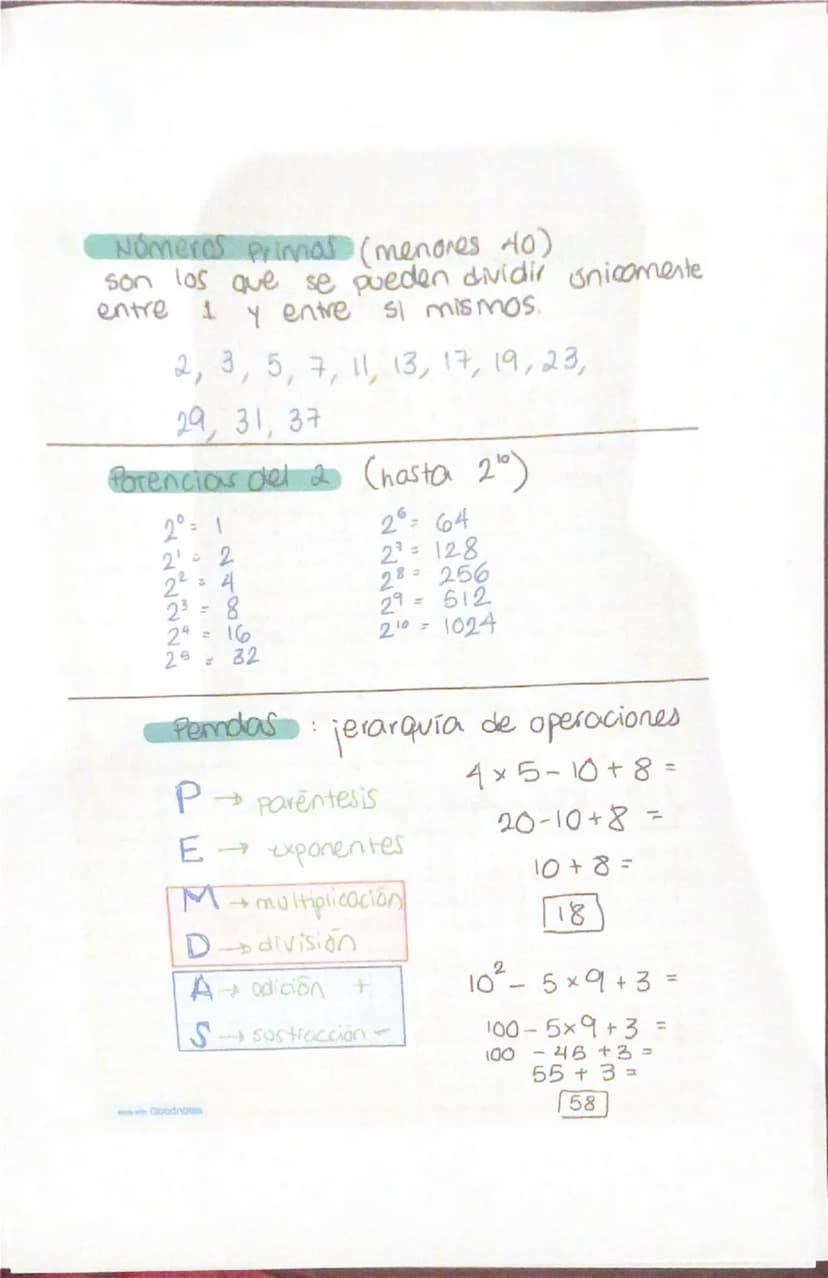 Números primos (menores 40)
son los que se pueden dividir únicamente
entre 1 y entre si mismos.
2, 3, 5, 7, 11, 13, 17, 19, 23,
29, 31, 37
Potencias del 2 (hasta 2¹⁰)
2⁰ = 1
2¹ = 2
2² = 4
2³ = 8
2⁴ = 16
2⁵ = 32
2⁶ = 64
2⁷ = 128
2⁸ = 256
2⁹ = 512
2¹⁰ = 1024
Pemdas : jerarquía de operaciones
P → paréntesis
E → exponentes
M → multiplicación
D → división
A → adición +
S → sustracción -
4 x 5 - 10 + 8 =
20 - 10 + 8 =
10 + 8 =
18
10² - 5 x 9 + 3 =
100 - 5 x 9 + 3 =
100 - 45 + 3 =
55 + 3 =
58
Goodnotes